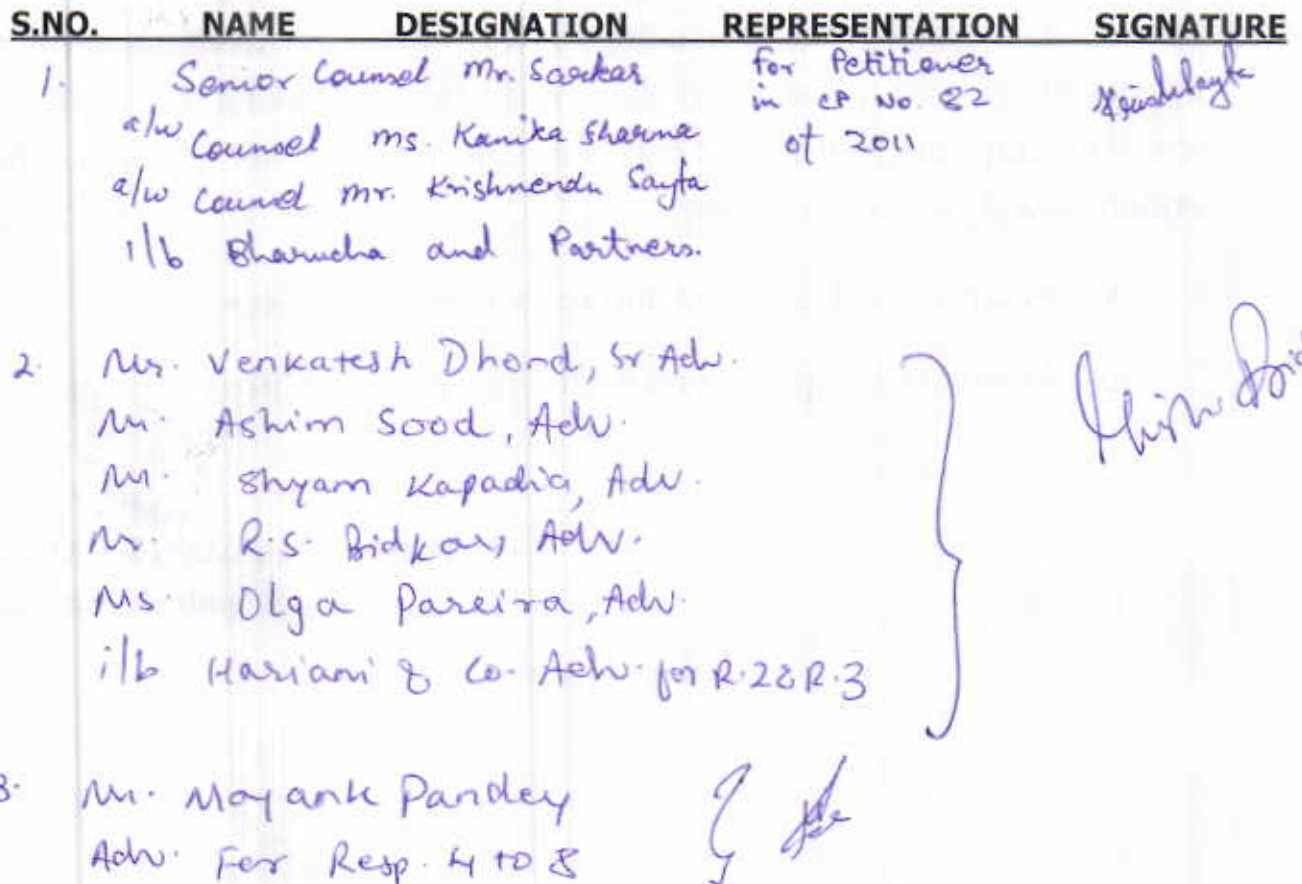 S.NO. NAME DESIGNATION REPRESENTATION SIGNATURE
1. Senior Counsel Mr. Sarkar for Petitioner
a/w Counsel Ms. Kanika Sharma in CP No. 82
a/w Counsel Mr. Krishnendu Sayta of 2011
i/b Bharucha and Partners.
2. Mr. Venkatesh Dhond, Sr Adv.
Mr. Ashim Sood, Adv.
Mr. Shyam Kapadia, Adv.
Mr. R.S. Bidkar, Adv.
Ms. Olga Pareira, Adv.
i/b Hariani & Co. Adv. for R.2 & R.3
3. Mr. Mayank Pandey
Adv. For Resp. 4 to 8